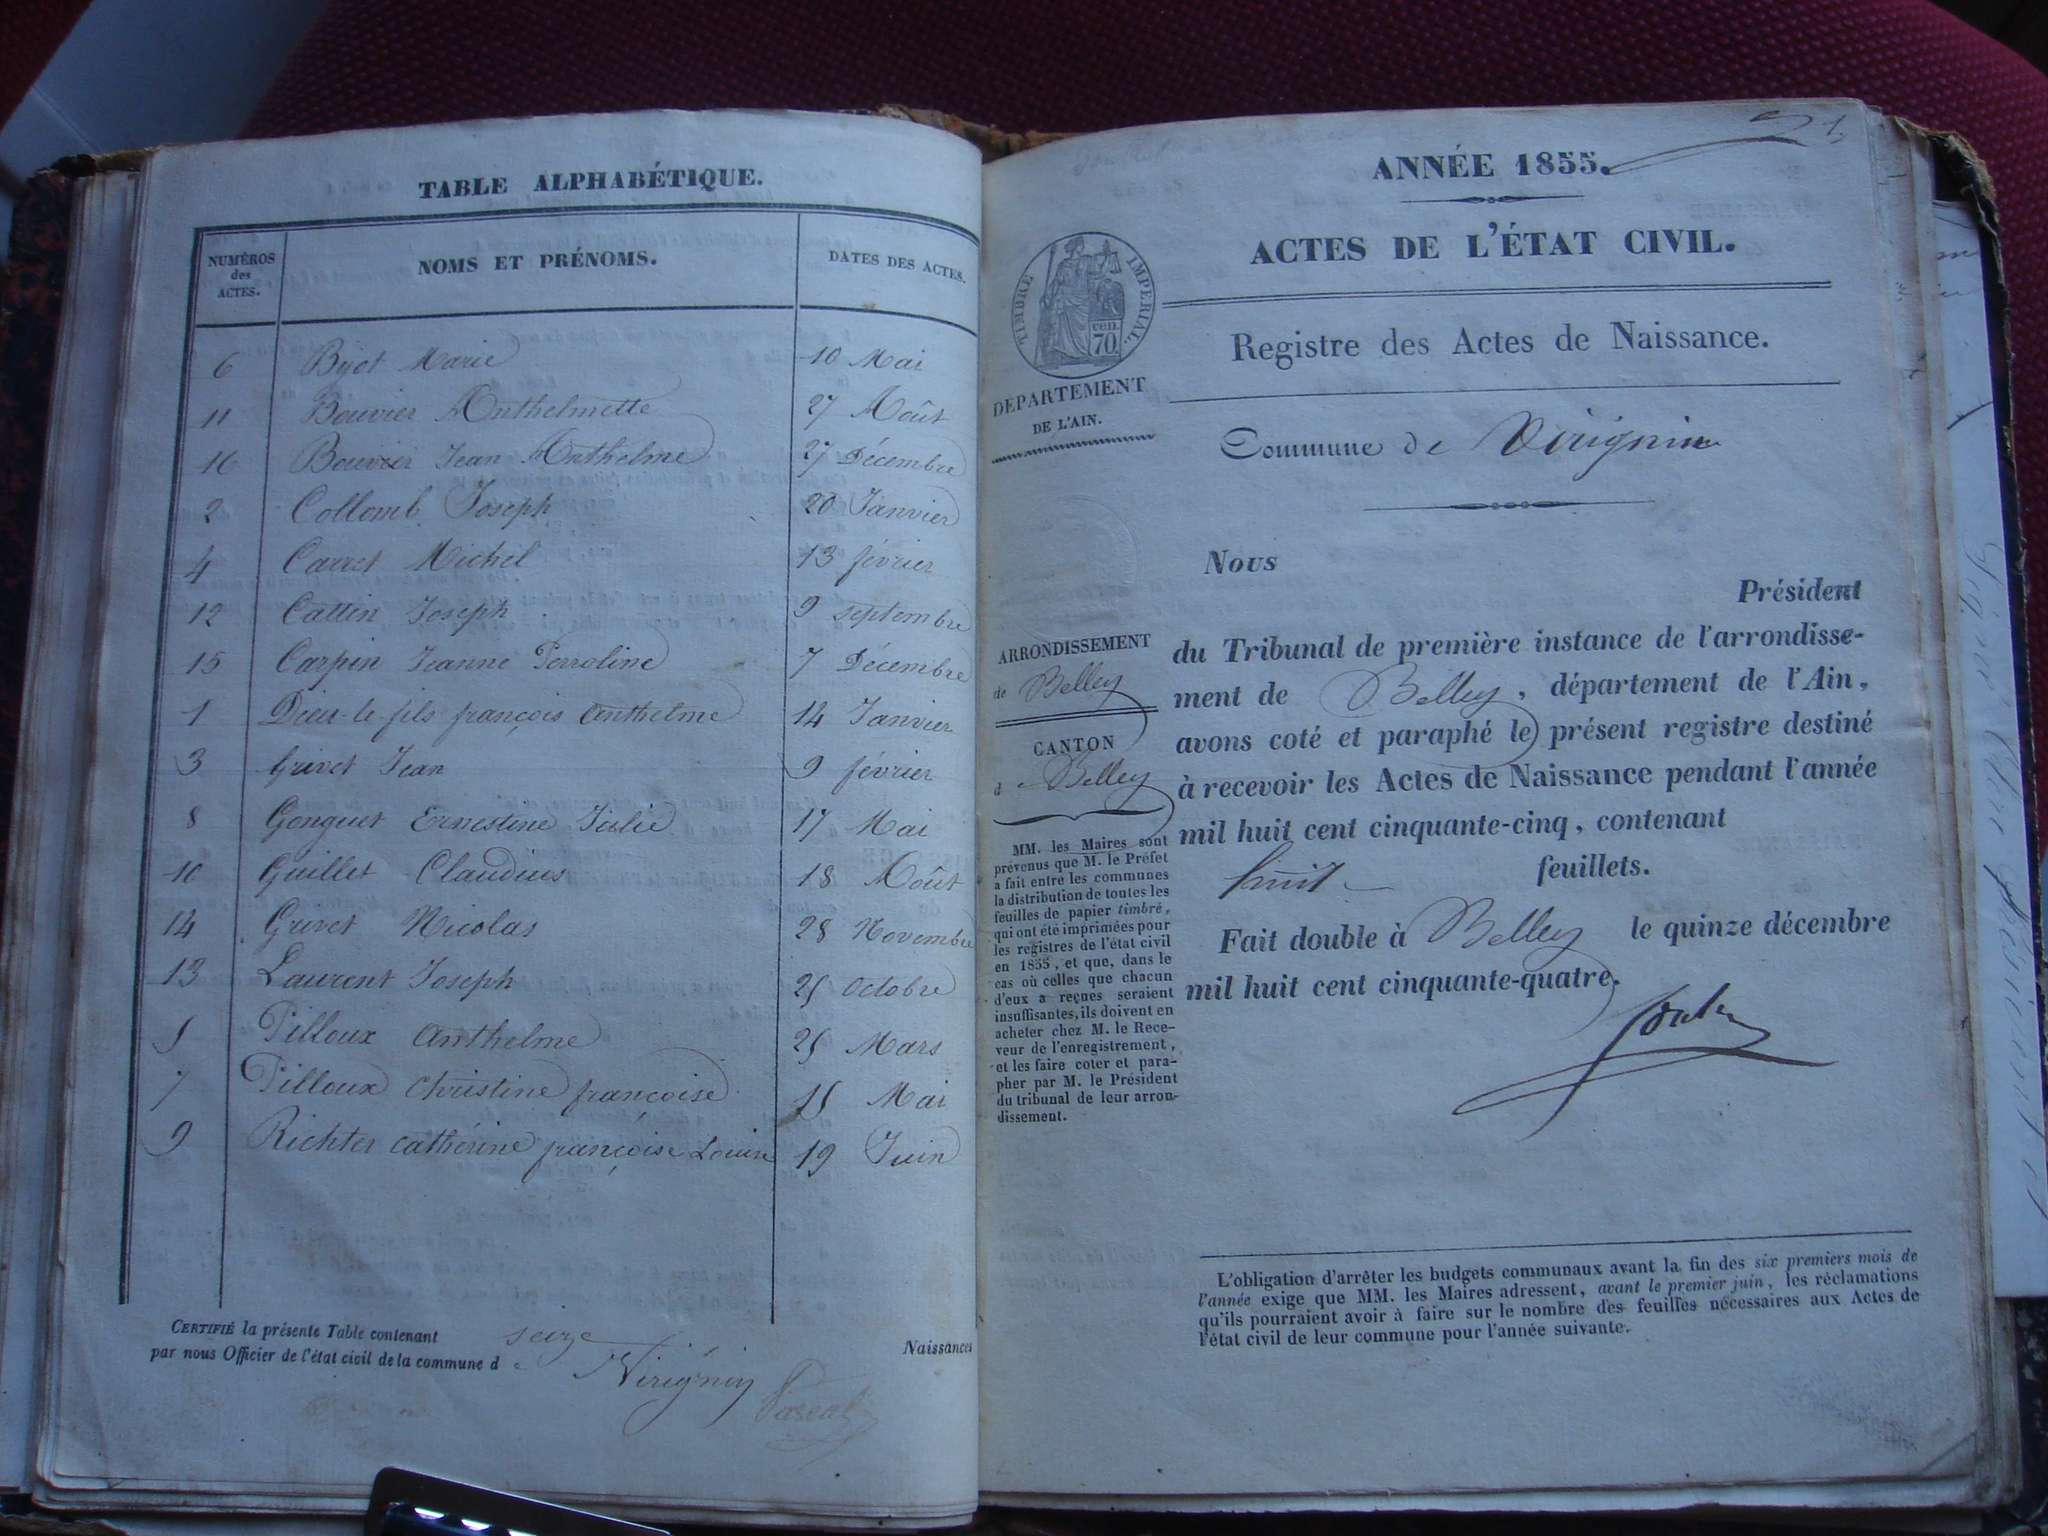 TABLE ALPHABÉTIQUE.
NUMÉROS des ACTES. NOMS ET PRÉNOMS. DATES DES ACTES.
6 Byot Marie 10 Mai
11 Bouvier Anthelmette 27 Août
16 Bouvier Jean Anthelme 27 Décembre
2 Collomb Joseph 20 Janvier
4 Carret Michel 13 février
12 Cattin Joseph 9 septembre
15 Carpin Jeanne Perroline 7 Décembre
1 Dieu-le-fils françois anthelme 14 Janvier
3 Grivet Jean 9 février
8 Gonguet Ernestine Julie 17 Mai
10 Guillet Claudius 18 Août
14 Grivet Nicolas 28 Novembre
13 Laurent Joseph 25 Octobre
5 Pilloux anthelme 25 Mars
7 Pilloux christine françoise 15 Mai
9 Richter cathérine françoise Louise 19 Juin
CERTIFIÉ la présente Table contenant seize Naissances
par nous Officier de l'état civil de la commune d e Virignin
Pascal
1
ANNÉE 1855.
ACTES DE L'ÉTAT CIVIL.
TIMBRE IMPERIAL.
cen.
70
DEPARTEMENT
DE L'AIN.
Registre des Actes de Naissance.
Commune de Virignin
Nous
Président
du Tribunal de première instance de l'arrondisse-
ment de Belley, département de l'Ain,
avons coté et paraphé le présent registre destiné
à recevoir les Actes de Naissance pendant l'année
mil huit cent cinquante-cinq, contenant
huit feuillets.
Fait double à Belley le quinze décembre
mil huit cent cinquante-quatre.
ARRONDISSEMENT
de Belley
CANTON
d e Belley
MM. les Maires sont
prévenus que M. le Préfet
a fait entre les communes
la distribution de toutes les
feuilles de papier timbré,
qui ont été imprimées pour
les registres de l'état civil
en 1855, et que, dans le
cas où celles que chacun
d'eux a reçues seraient
insuffisantes, ils doivent en
acheter chez M. le Rece-
veur de l'enregistrement,
et les faire coter et para-
pher par M. le Président
du tribunal de leur arron-
dissement.
L'obligation d'arrêter les budgets communaux avant la fin des six premiers mois de
l'année exige que MM. les Maires adressent, avant le premier juin, les réclamations
qu'ils pourraient avoir à faire sur le nombre des feuilles nécessaires aux Actes de
l'état civil de leur commune pour l'année suivante.